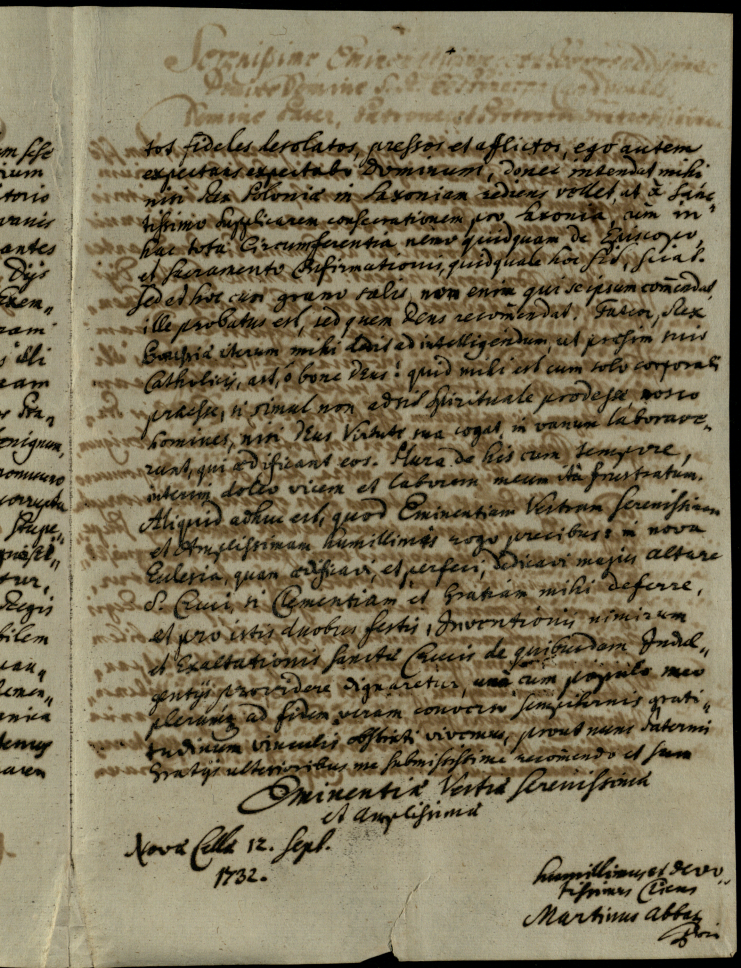 tos fideles desolatos, pressos et afflictos, ego autem
expectans expectabo Dominum, donec intendat mihi
nisi Rex Poloniæ in Saxoniam rediens vellet, ut à Sanc„
tissimo supplicarem consecrationem pro Saxonia, cùm in
hac tota Circumferentia nemo quidquam de Episcopo,
et Sacramento Confirmationis, quid quale hoc sit, sciat.
sed et hoc cum grano salis, non enim qui seipsum com̃endat,
ille probatus est, sed quem Deus recom̃endat. Fateor, Rex
Borussiæ iterum mihi dedit ad intelligendum, ut prosim suis
Catholicis, ast, ô bone Deus! quid mihi est cum solo corporali
præesse, si simul non adsit spirituale prodesse nosco
homines, nisi Deus Virtute sua cogat, in vanum laborave„
runt, qui ædificant eos. Plura de his cum tempore,
interim doleo vicem et laborem meum ità frustratum.
Aliquid adhuc est, quod Eminentiam Vestram Serenissimam
et Amplissimam humillimis rogo precibus: in nova
Ecclesia, quam ædificavi, et perfeci, dedicavi majus altare
S. Cruci, si Clementiam et Gratiam mihi deferre,
et pro istis duobus festis, Inventionis nimirum
et Exaltationis Sanctæ Crucis de quibusdam Indul„
gentijs providere dignaretur, unà cum populo meo
ad fidem veram converso sempiternis grati„
tudinum vinculis obstricti vivemus, prout nunc Paternis
Gratijs ulterioribus me submississime recom̃endo et sum
Eminentiæ Vestræ Serenissimæ
et Amplissimæ
Novæ Cellæ 12. Sept.
1732.
humillimus et devo„
tissimus Cliens
Martinus Abbas